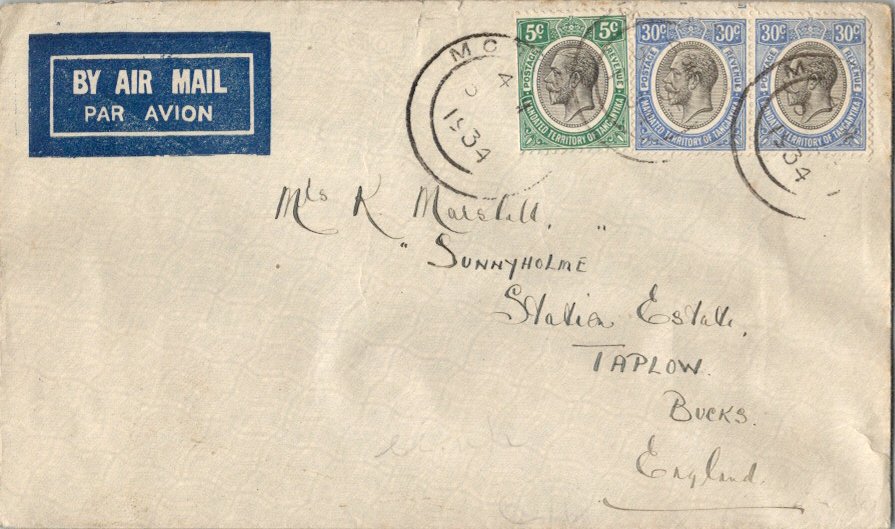 BY AIR MAIL
PAR AVION
5c 5c
POSTAGE REVENUE
MANDATED TERRITORY OF TANGANYIKA
30c 30c
POSTAGE REVENUE
MANDATED TERRITORY OF TANGANYIKA
30c 30c
REVENUE
MANDATED TERRITORY OF TANGANYIKA
4
1934
1934
Mrs K. Marshall.
"Sunnyholme"
Station Estate,
Taplow.
Bucks.
England.